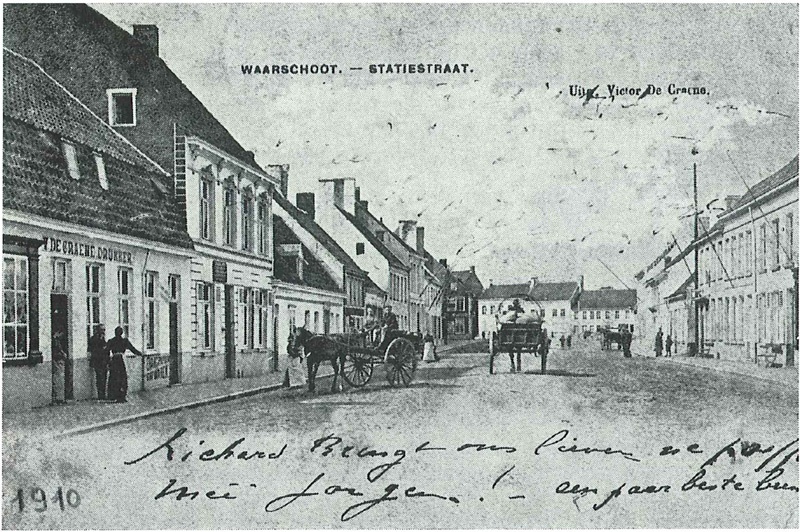 WAARSCHOOT. — STATIESTRAAT.
Uitg. Victor De Graeve.
V. DE GRAEVE, DRUKKER
Richard Brengt ons lieven
meê Jorgen! — een paar beste
1910